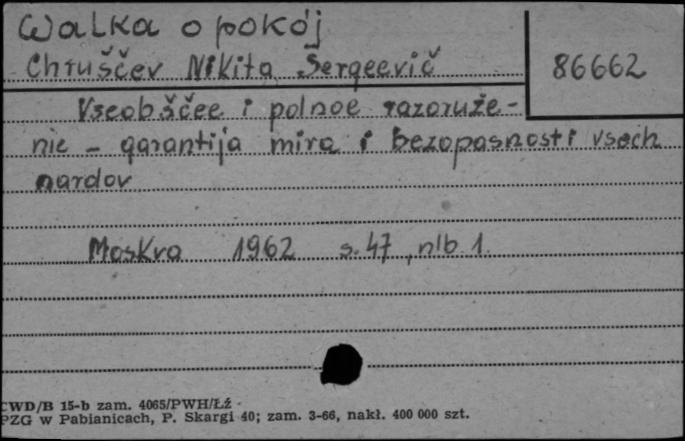 Walka o pokój
Chruščev Nikita Sergeevič
86662
Vseobščee i polnoe razoruže-
nie - garantija mira i bezopasnosti vsech
nardov
Moskva 1962 s. 47, nlb 1.
CWD/B 15-b zam. 4065/PWH/Łź
PZG w Pabianicach, P. Skargi 40; zam. 3-66, nakł. 400 000 szt.